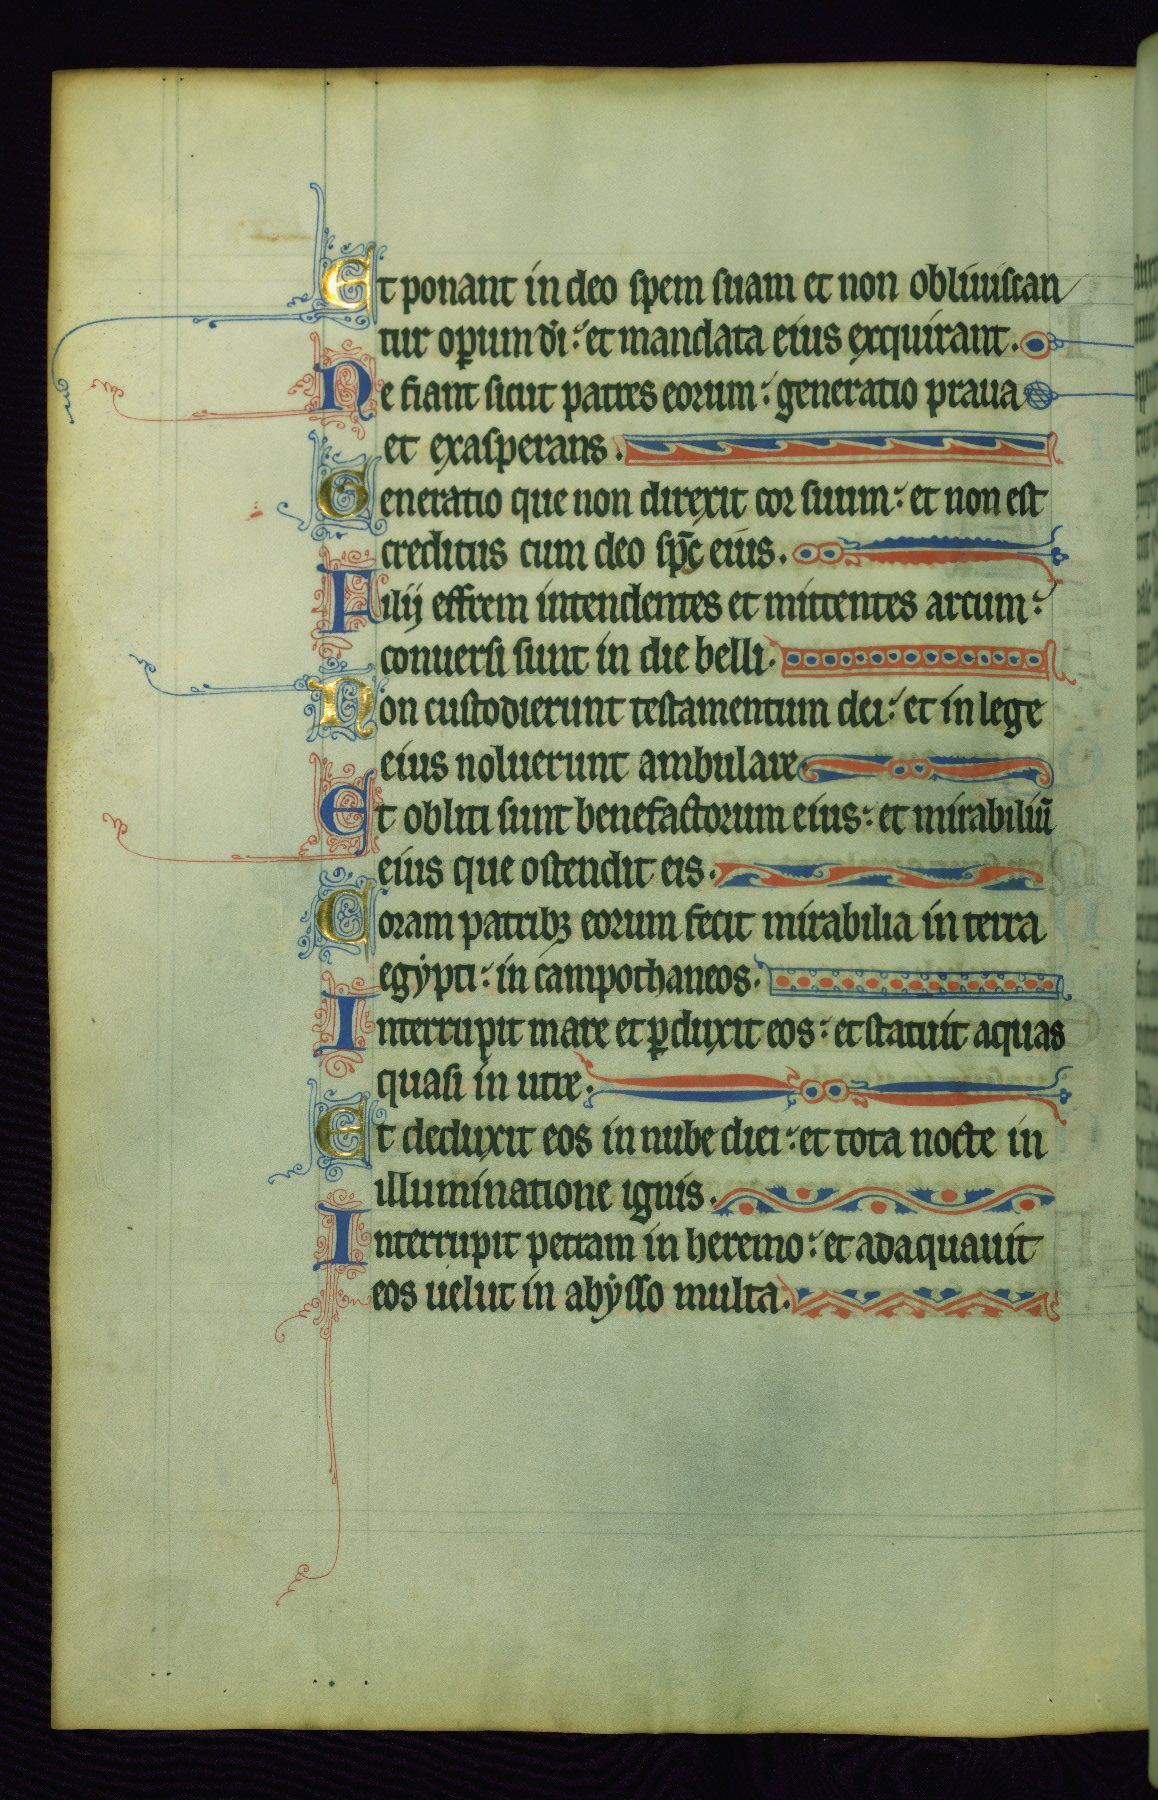 Et ponant in deo spem suam et non obliuiscan
tur oꝑum dī: et mandata eius exquirant.
Ne fiant sicut patres eorum: generatio praua
et exasperans.
Generatio que non direxit cor suum: et non est
creditus cum deo spc̄ eius.
Filij effrem intendentes et mittentes arcum:
conuersi sunt in die belli.
Non custodierunt testamentum dei: et in lege
eius noluerunt ambulare
Et obliti sunt benefactorum eius: et mirabiliū
eius que ostendit eis.
Coram patribꝫ eorum fecit mirabilia in terra
egypti: in campothaneos.
Interrupit mare et ꝑduxit eos: et statuit aquas
quasi in utre.
Et deduxit eos in nube diei: et tota nocte in
illuminatione ignis.
Interrupit petram in heremo: et adaquauit
eos uelut in abysso multa.